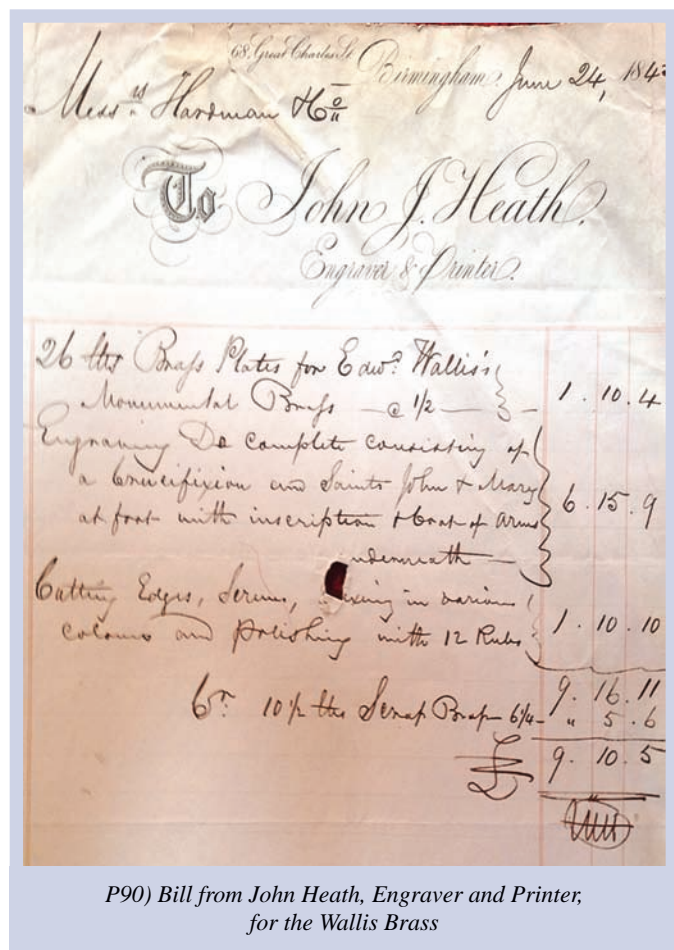 68, Great Charles St. Birmingham, June 24, 184
Messrs Hardman & Co
To John J. Heath,
Engraver & Printer.
26 lbs Brass Plates for Edwd Wallis's
Monumental Brass — @ 1/2 — 1 . 10 . 4
Engraving Do complete consisting of
a Crucifixion and Saints John & Mary
at foot with inscription & Coat of Arms 6 . 15 . 9
underneath —
Cutting Edges, Screws, in various
colours and polishing with 12 Rubs 1 . 10 . 10
9 . 16 . 11
Cr. 10 1/2 lbs Scrap Brass 6 1/4 — " 5 . 6
£ 9 . 10 . 5
P90) Bill from John Heath, Engraver and Printer,
for the Wallis Brass